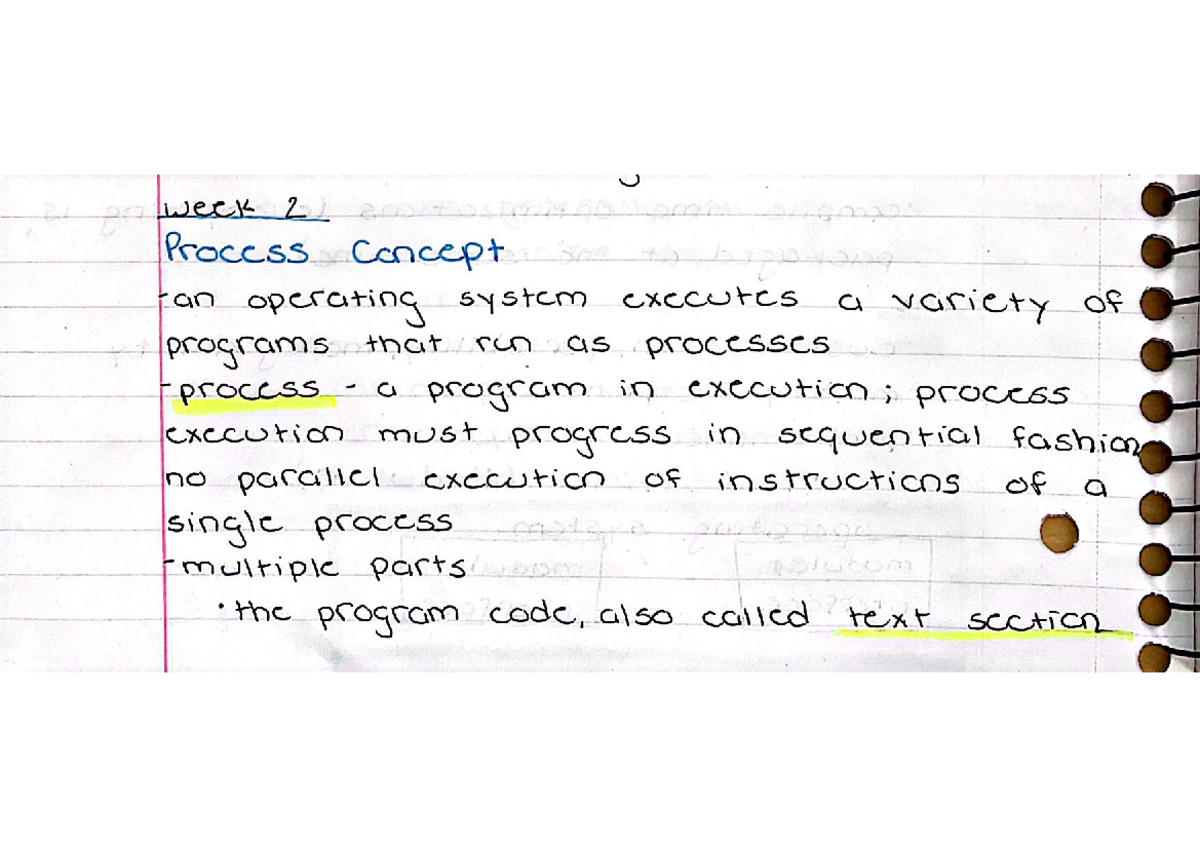 week 2
Process Concept
-an operating system executes a variety of
programs that run as processes
-process - a program in execution; process
execution must progress in sequential fashion
no parallel execution of instructions of a
single process
-multiple parts
•the program code, also called text section